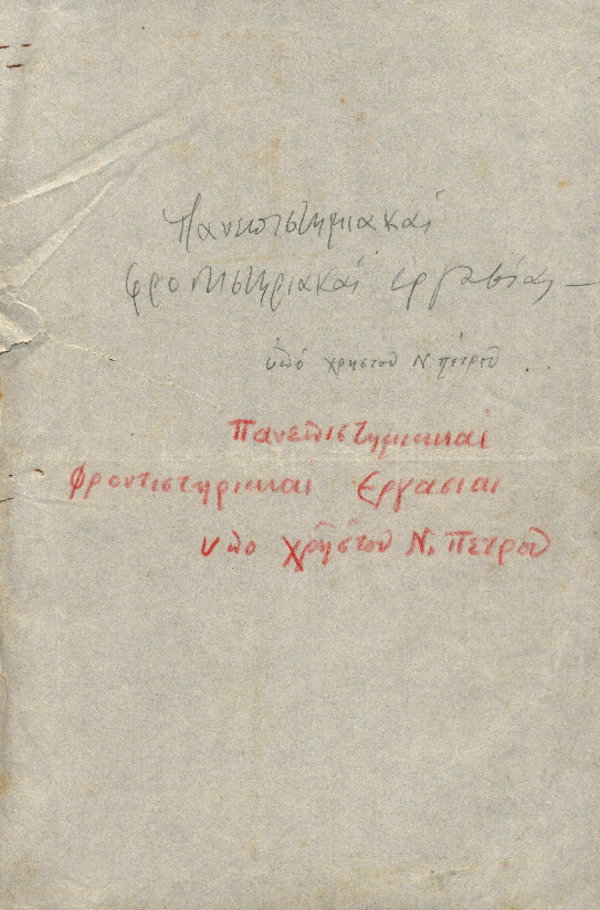 Πανεπιστημιακαί
φροντιστηριακαί ἐργασίαι
ὑπό χρηστου Ν πέτρου
Πανεπιστημιακαι
Φροντιστηριακαι Εργασιαι
υπο χρηστου Ν. Πετρου